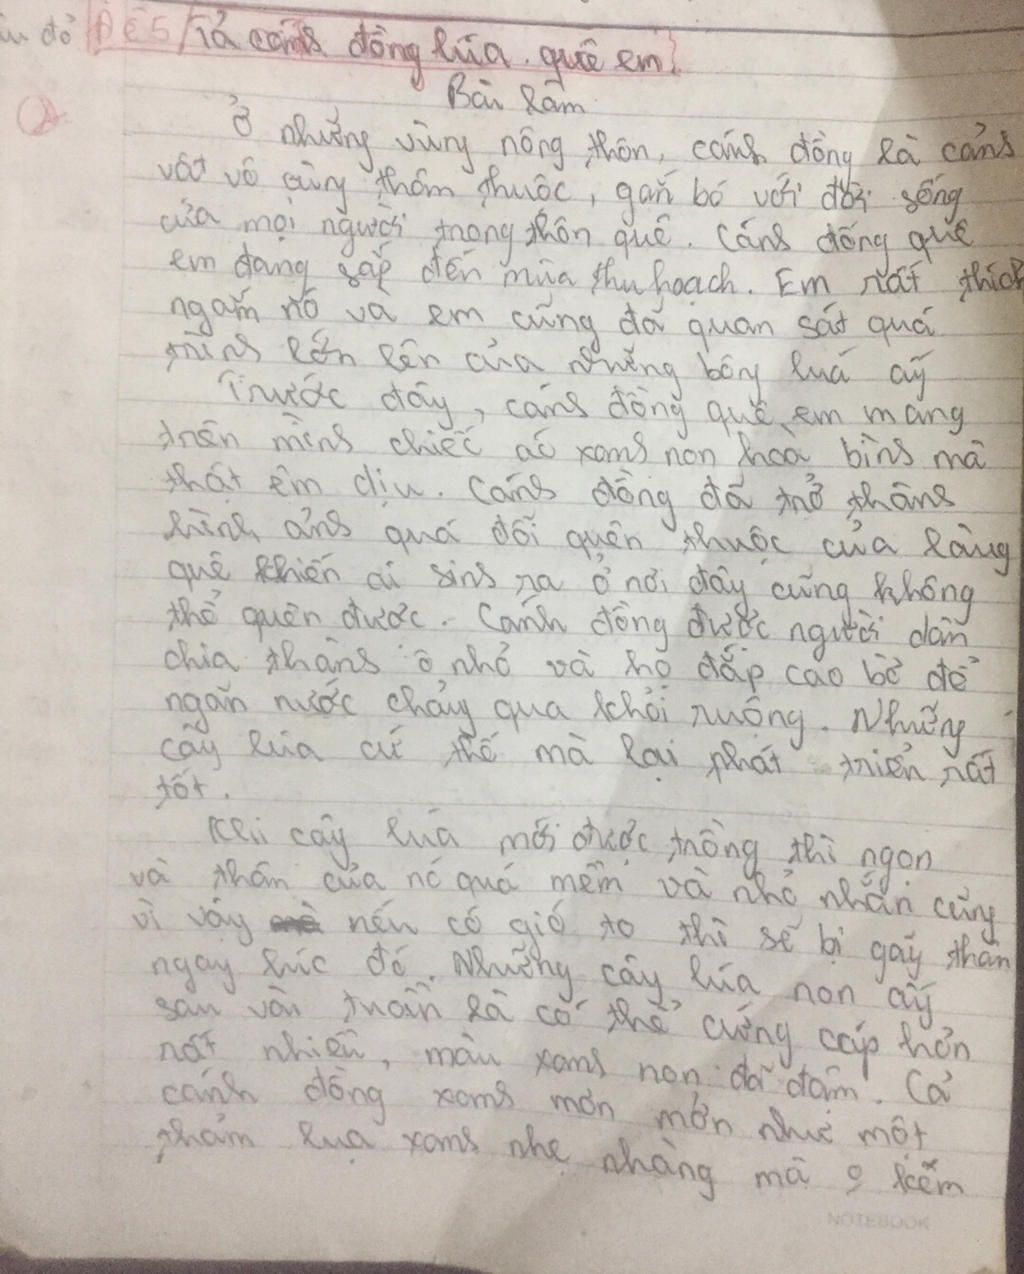 Đề 5 Tả cánh đồng lúa quê em.
Bài làm
Ở những vùng nông thôn, cánh đồng là cảnh
vật vô cùng thâm thuộc, gắn bó với đời sống
của mọi người trong thôn quê. Cánh đồng quê
em đang sắp đến mùa thu hoạch. Em rất thích
ngắm nó và em cũng đã quan sát quá
trình lớn lên của những bông luá ấy
Trước đây, cánh đồng quê em mang
trên mình chiếc áo xanh non hòa bình mà
thật êm dịu. Cánh đồng đã trở thành
hình ảnh quá đỗi quên thuộc của làng
quê khiến ai sinh ra ở nơi đây cũng không
thể quên được. Cánh đồng được người dân
chia thành ô nhỏ và họ đắp cao bờ để
ngăn nước chảy qua khỏi ruộng. Những
cây lúa cứ thế mà lại phát triển rất
tốt.
Khi cây lúa mới được trồng thì ngọn
và thân của nó quá mềm và nhỏ nhắn cũng
vì vậy nến có gió to thì sẽ bị gãy thân
ngay lúc đó. Những cây lúa non ấy
sau vài tuần là có thể cứng cáp hơn
rất nhiều, màu xanh non đã đậm. Cả
cánh đồng xanh mơn mởn như một
thảm lụa xanh nhẹ nhàng mà kiếm
NOTEBOOK